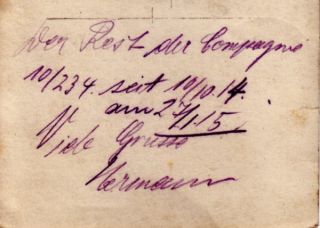 Der Rest der Compagnie
10/234. seit 10/10.14.
am 27/1.15.
Viele Grüsse
Hermann